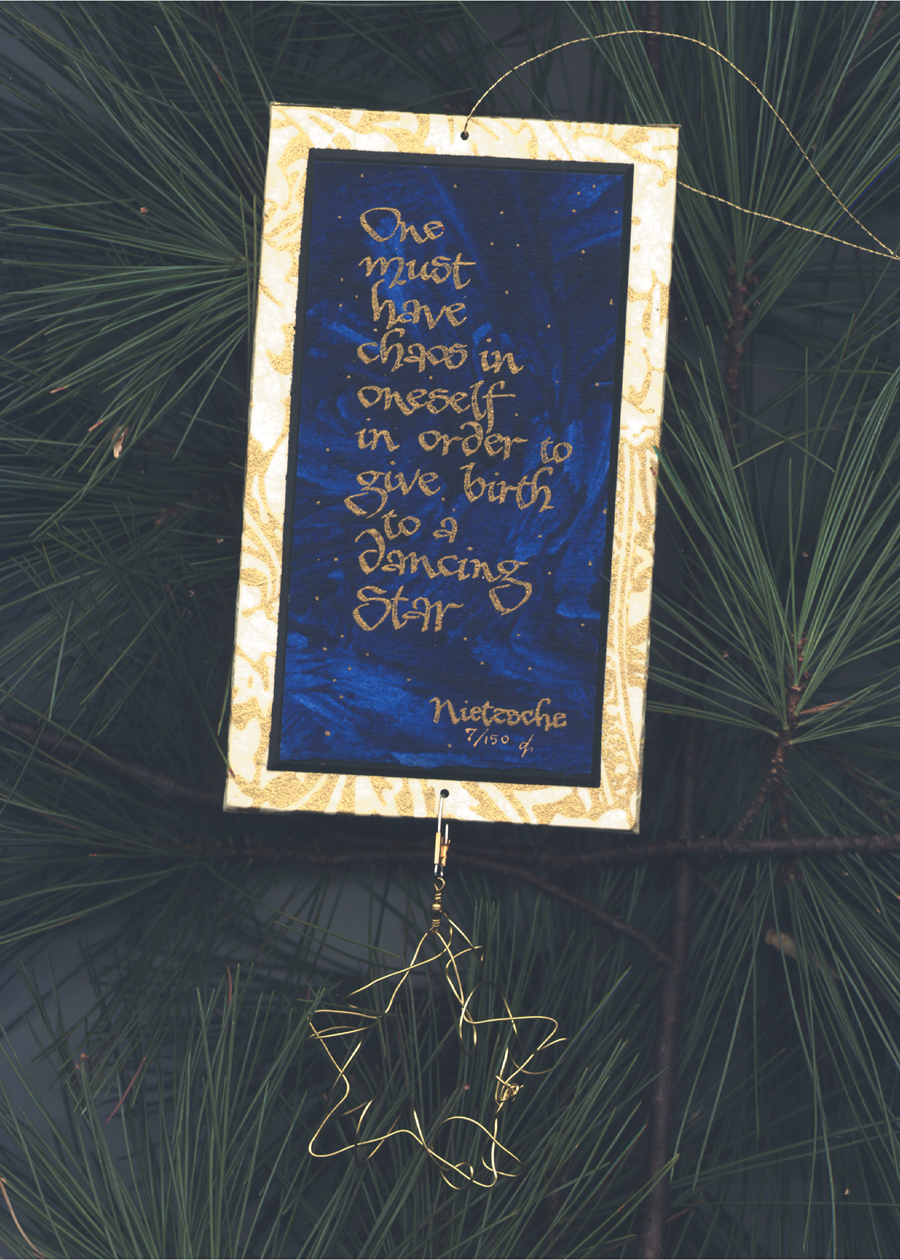 One
must
have
chaos in
oneself
in order to
give birth
to a
dancing
Star
Nietzsche
7/150